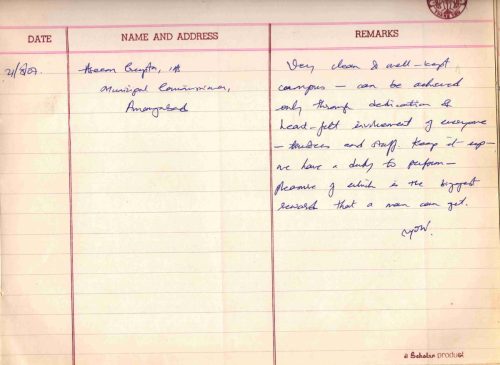 DATE NAME AND ADDRESS REMARKS
Aseem Gupta,
Municipal Commissioner,
Aurangabad
Very clean & well-kept
campus — can be achieved
only through dedication &
heart-felt involvement of everyone
— trustees and staff. Keep it up —
we have a duty to perform —
pleasure of which is the biggest
reward that a man can get.
a Scholar product